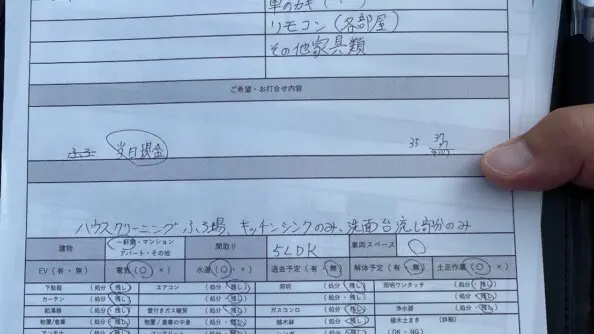 車のカギ(
リモコン(各部屋)
その他家具類
ご希望・お打合せ内容
当日現金
35 37
ハウスクリーニング ふろ場、キッチンシンクのみ、洗面台流し部分のみ
建物 一軒家・マンション アパート・その他 間取り 5LDK 車両スペース ○
EV(有・無) 電気(○・×) 水道(○・×) 過去予定(有・無) 解体予定(有・無) 土足作業(○・×)
下駄箱 (処分・残し) エアコン (処分・残し) 照明 (処分・残し) 照明ワンタッチ (処分・残し)
カーテン (処分・残し) (処分・残し) (処分・残し) (処分・残し)
給湯器 (処分・残し) 壁付きガス暖房 (処分・残し) ガスコンロ (処分・残し) 浄水器 (処分・残し)
物置/倉庫 (処分・残し) 物置/倉庫の中身 (処分・残し) 植木鉢 (処分・残し) 植木土まき (詳細)
(処分・残し) (処分・残し) (処分・残し) (OK・NG)